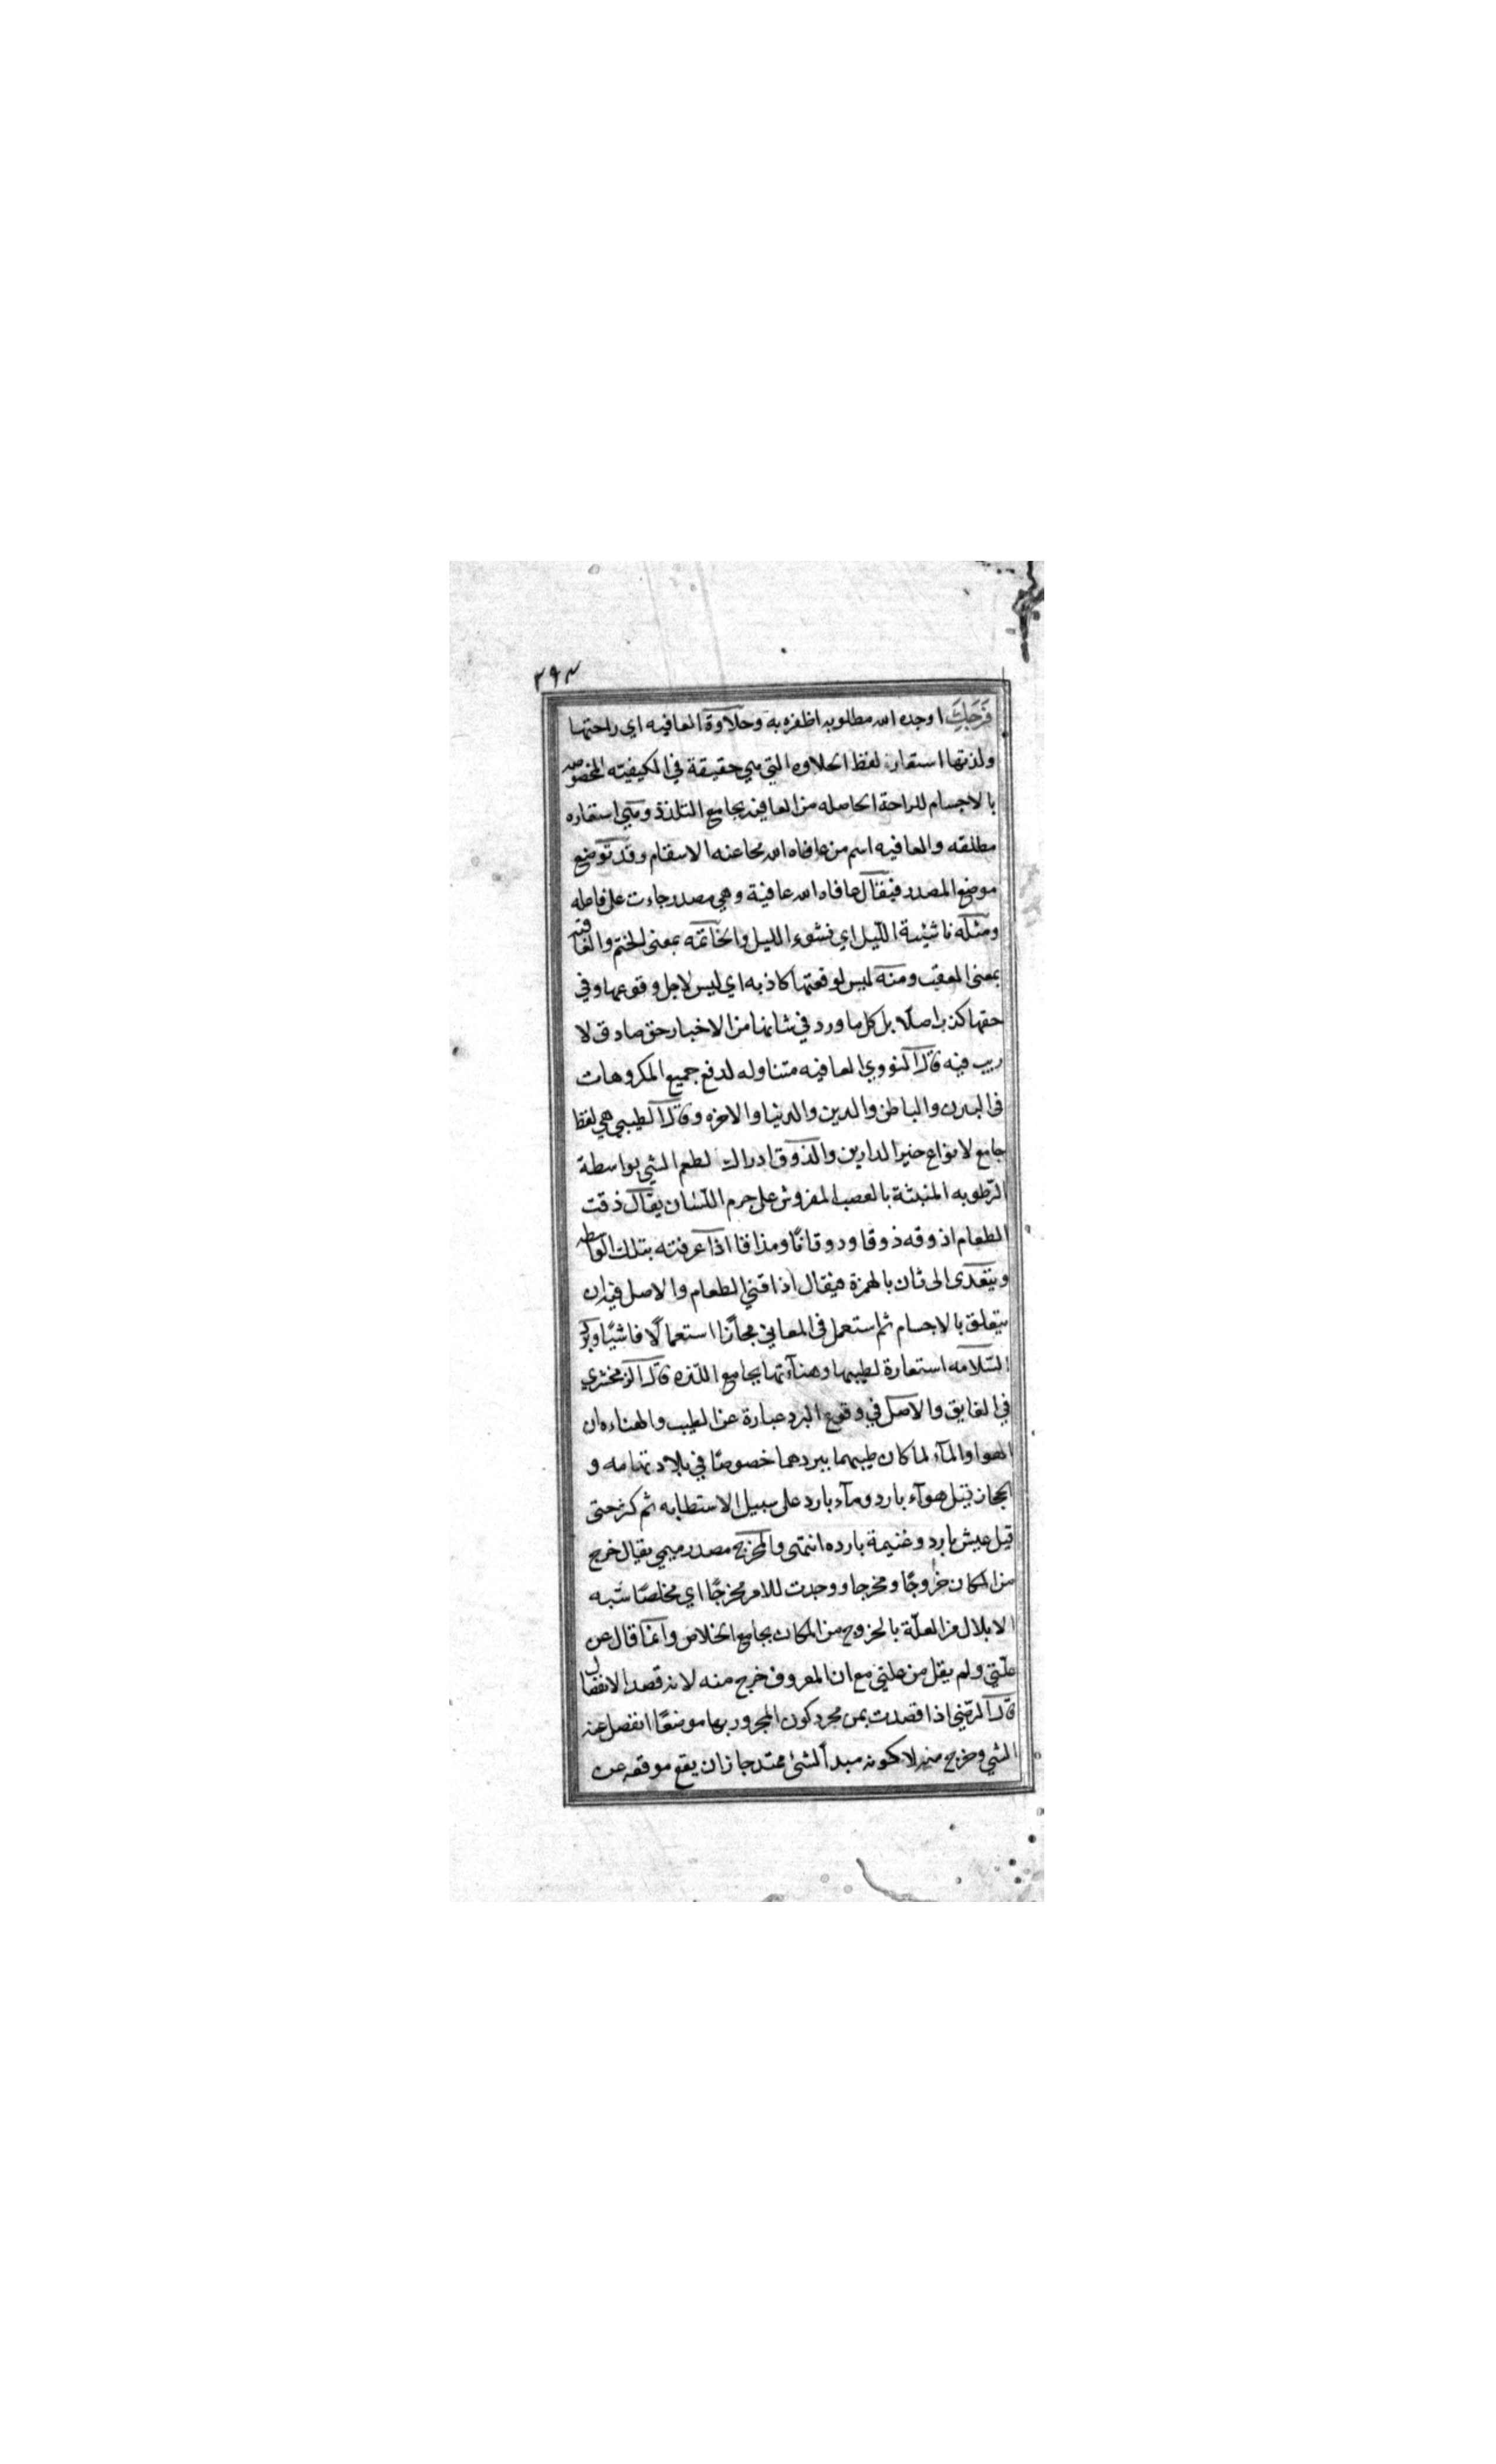 ٢٩٣
فَرَجَكَ اوجده الله مطلوبه اظفره به وحلاوة العافيه اي راحتها
ولذتها استعار لفظ الحلاوه التي هي حقيقة في الكيفيته المخصوصه
بالاجسام للراحة الحاصله من العافيه بجامع التلذذ وهي استعاره
مطلقه والعافيه اسم من عافاه الله محاعنه الاسقام وقد توضع
موضع المصدر فيقال عافاه الله عافية وهي مصدر جاءت على فاعله
ومثله ناشئية الليل اي نشوء الليل والخاتمه بمعنى الختم والعاقبه
بمعنى العقب ومنه ليس لوقعتها كاذبه اي ليس لاجل وقوعها وفي
حقها كذب اصلا بل كل ما ورد في شانها من الاخبار حق صادق لا
ريب فيه قال النووي العافيه متناوله لدفع جميع المكروهات
في البدن والباطن والدين والدنيا والاخره وقال الطيبي هي لفظ
جامع لانواع خير الدارين والذوق ادراك لطعم الشي بواسطة
الرّطوبه المنبثة بالعصب المفروش على جرم اللّسان يقال ذقت
الطعام اذوقه ذوقا وذوقانًا ومذاقا اذا عرفته بتلك الواسطه
ويتعدى الى ثان بالهمزة فيقال اذاقني الطعام والاصل فيه ان
يتعلق بالاجسام ثم استعمل في المعاني مجازًا استعمالًا فاشيًا وبرد
السّلامه استعارة لطيبها وهنآءتها بجامع اللّذه قال الزمخشري
في الفايق والاصل في وقوع البرد عبارة عن الطيب والهناءه ان
الهوا والمآء لما كان طيبهما ببردهما خصوصًا في بلاد تهامه و
الحجاز قيل هوآء بارد ومآء بارد على سبيل الاستطابه ثم كثر حتى
قيل عيش بارد وغنيمة بارده انتهى والمخرج مصدر ميمي يقال خرج
من المكان خروجًا ومخرجا ووجدت للامر مخرجًا اي مخلصًا شبه
الابلال من العلّة بالخروج من المكان بجامع الخلاص وانما قال عن
علّتي ولم يقل من علتي مع ان المعروف خرج منه لانه قصد الانفصال
قال الرّضي اذا قصدت بمن مجرد كون المجرور بها موضعًا انفصل عنه
الشي وخرج منه لا كونه مبدأ لشئ ممتد جاز ان يقع موقعه عن